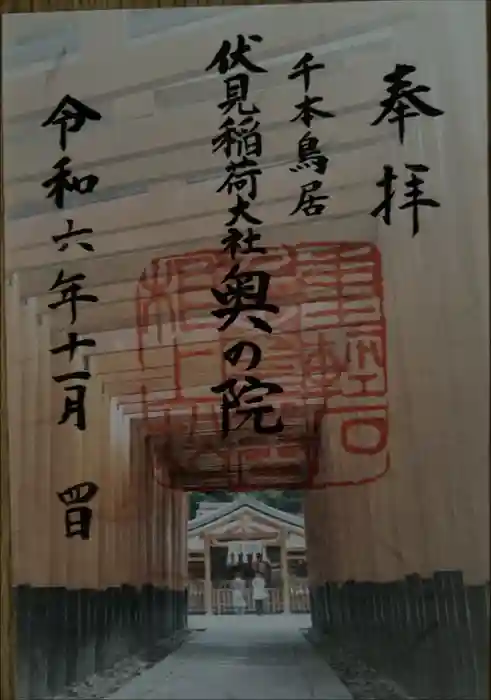 奉拝
千本鳥居
伏見稲荷大社奥の院
令和六年十一月 四日